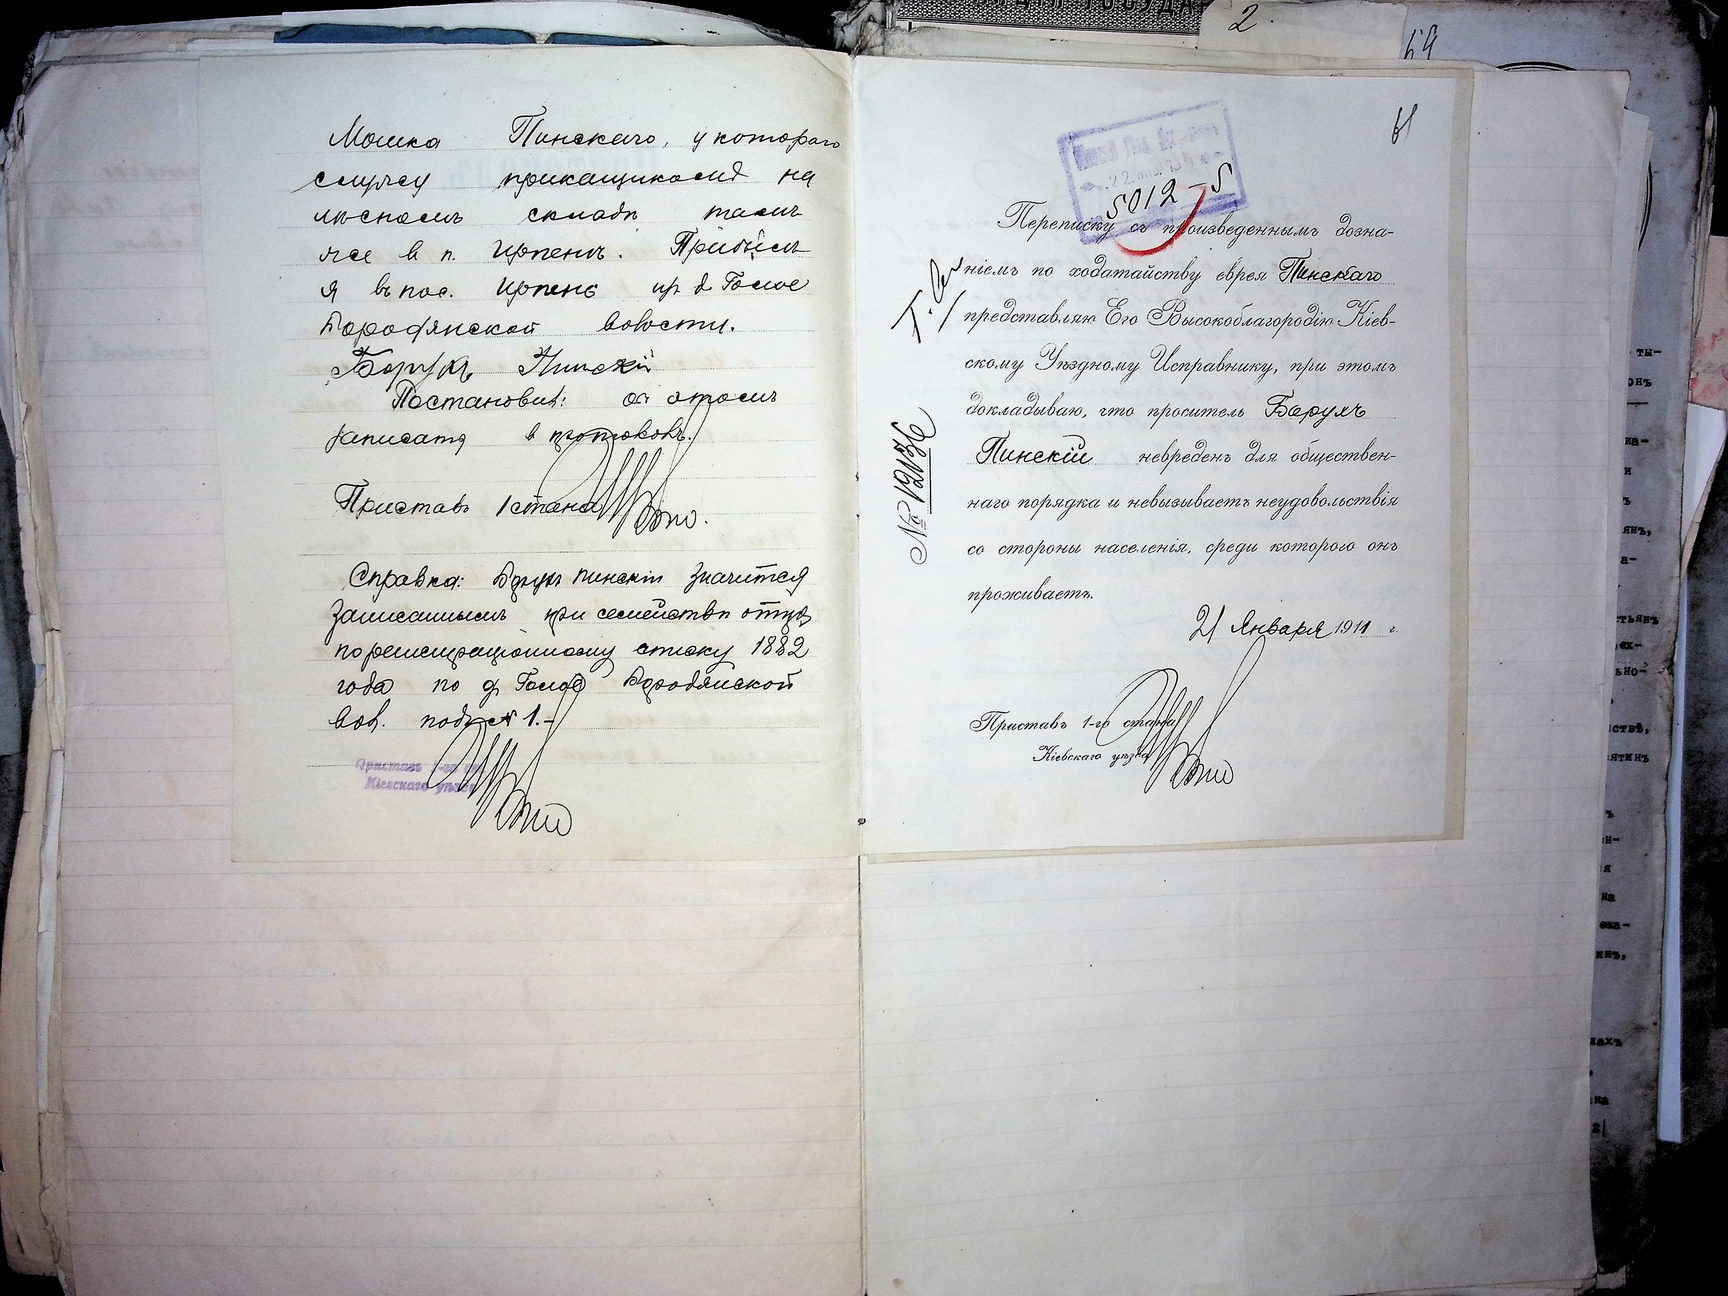 Мошка Пинскаго, у котораго
служу прикащикомъ на
лѣсномъ складѣ тамъ
же в п. Ирпень. Прибылъ
я въ пос. Ирпень из д Голое
Бородянской волости.
Борухъ Пинскій
Постановилъ: об этомъ
записать в протоколъ.
Приставъ 1 стана
Справка: Борухъ Пинскій значится
записаннымъ при семействѣ отца
по регистраціонному списку 1882
года по д Голое Бородянской
вол. подъ № 1.-
Приставъ 1-го
Кіевскаго уѣзда
2
59
61
22
5012-5
Переписку съ произведеннымъ дозна-
ніемъ по ходатайству еврея Пинскаго
представляю Его Высокоблагородію Кіев-
скому Уѣздному Исправнику, при этомъ
докладываю, что проситель Борухъ
Пинскій невреденъ для обществен-
наго порядка и невызываетъ неудовольствія
со стороны населенія, среди котораго онъ
проживаетъ.
21 Января 1911 г.
Приставъ 1-го стана
Кіевскаго уѣзда
№ 12176